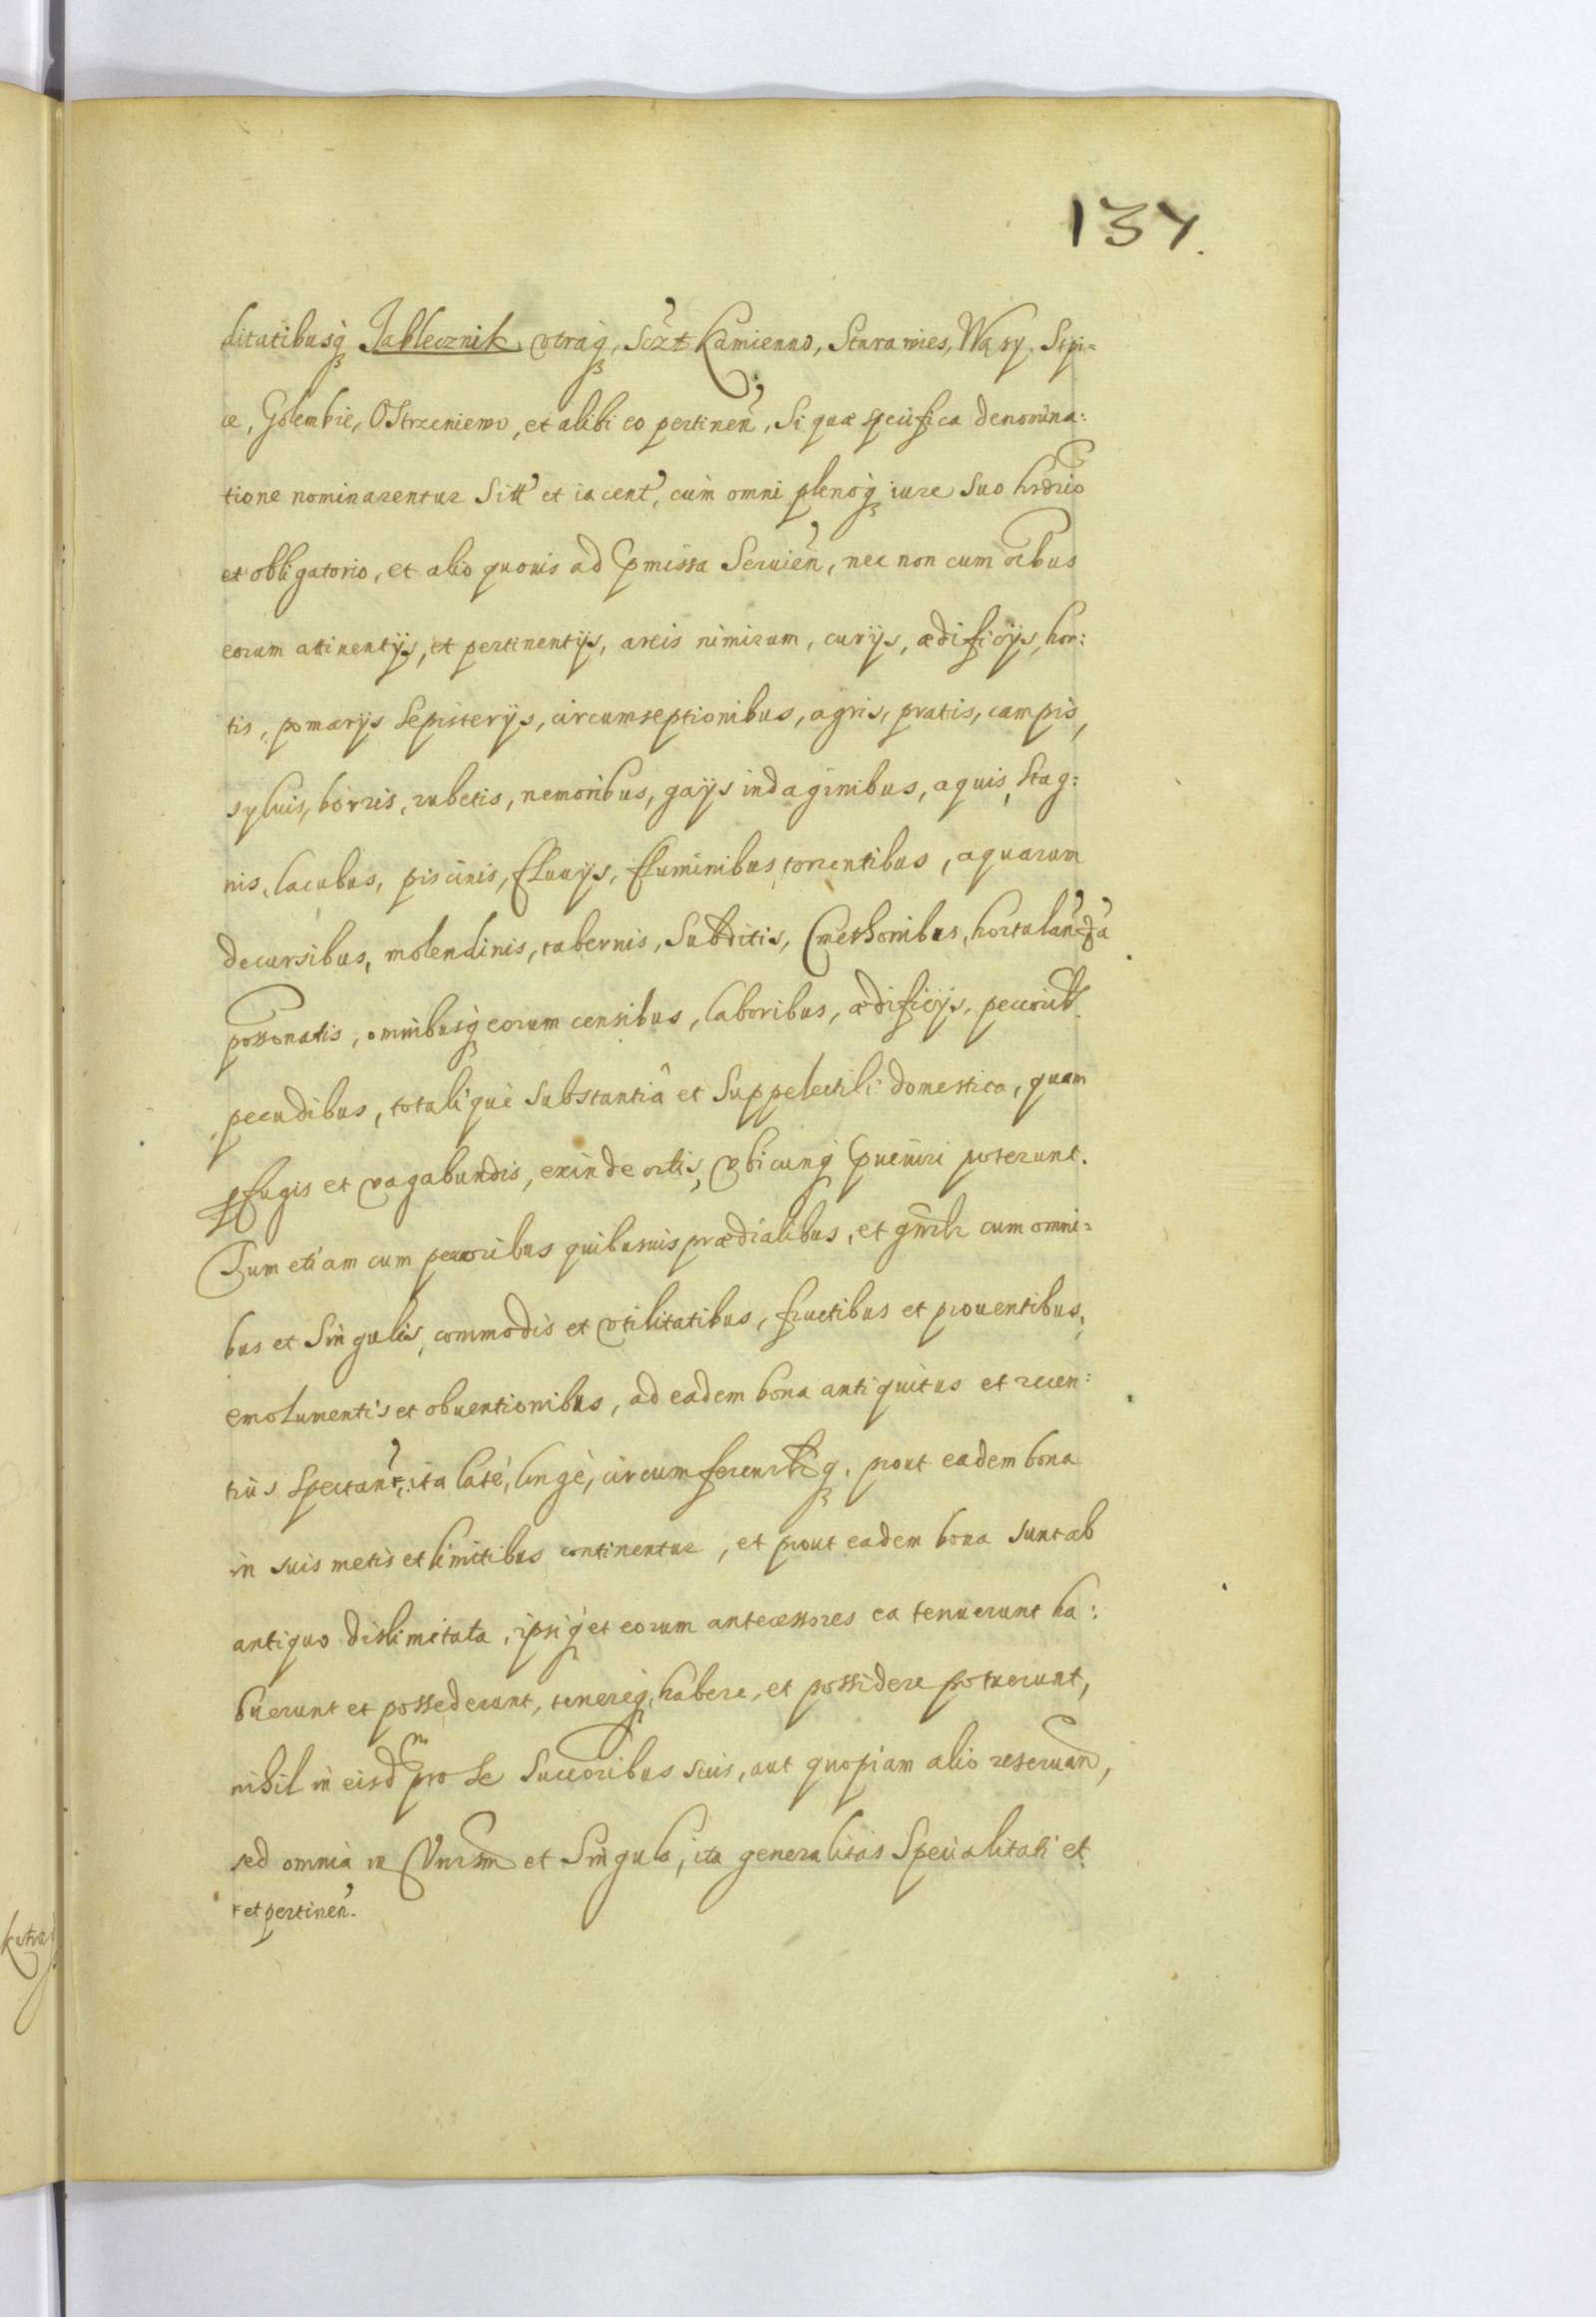 137.
ditatibusq Jablecznik utraq, Sczt Kamienno, Stara wies, Wąsy, Stpi=
ce, Golembie, Ostrzeniewo, et alibi eo pertinen, Si quæ specifica denomina:
tione nominarentur Sitt et iacent, cum omni plenoq iure suo hrdrio
et obligatorio, et alio quovis ad pmissa Servien, nec non cum oibus
eorum attinentijs, et pertinentijs, areis nimirum, curijs, ædificijs, hor:
tis, pomarijs Sepisterijs, circumseptionibus, agris, pratis, campis,
sylvis, borris, rubetis, nemoribus, gaijs indaginibus, aquis, Stag:
nis, lacubus, piscinis, fluvijs, fluminibus torrentibus, aquarum
decursibus, molendinis, tabernis, Subditis, Cmethonibus, hortulan
possonatis, omnibusq eorum censibus, laboribus, ædificijs, peccorib
pecudibus, totalique Substantia et Suppelectili domestica, quam
pfugis et vagabundis, exinde ortis, Ubicunq pueniri poterunt.
Tum etiam cum peccoribus quibusvis prædialibus, et gnrlr cum omni=
bus et Singulis, commodis et utilitatibus, fructibus et proventibus,
emolumentis et obventionibus, ad eadem bona antiquitus et recen:
tius Spectant, ita late, longe, circumferentrq, prout eadem bona
in suis metis et limitibus continentur, et prout eadem bona sunt ab
antiquo dislimitata, ipsiq et eorum antecessores ea tenuerunt ha:
buerunt et possederunt, tenereq, habere, et possidere potuerunt,
nihil in eisdm pro Se Succoribus suis, aut quopiam alio reservan,
sed omnia in Unrsm et Singula, ita generalitas Specialitati et
+ et pertinen.